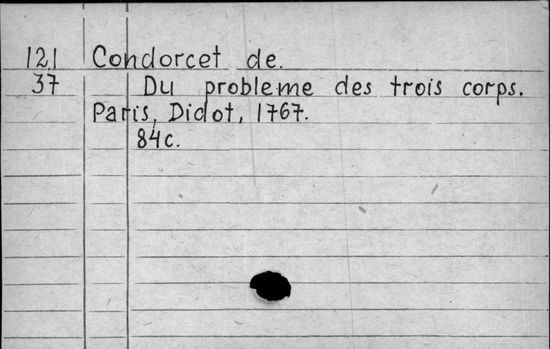 121 Condorcet de.
37 Du probleme des trois corps.
Paris, Didot, 1767.
84c.